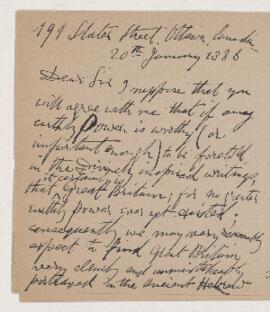 194 Slater Street, Ottawa, Canada
20th January 1886
Dear Sir I suppose that you
will agree with me that if any
earthly Power is worthy (or
important enough) to be foretold
in the Divinely inspired writings,
it certainly is
that Great Britain; for no greater
earthly Power ever yet existed;
consequently we may very reasonably
expect to find Great Britain
very clearly and unmistakeably
portrayed in the ancient Hebrew